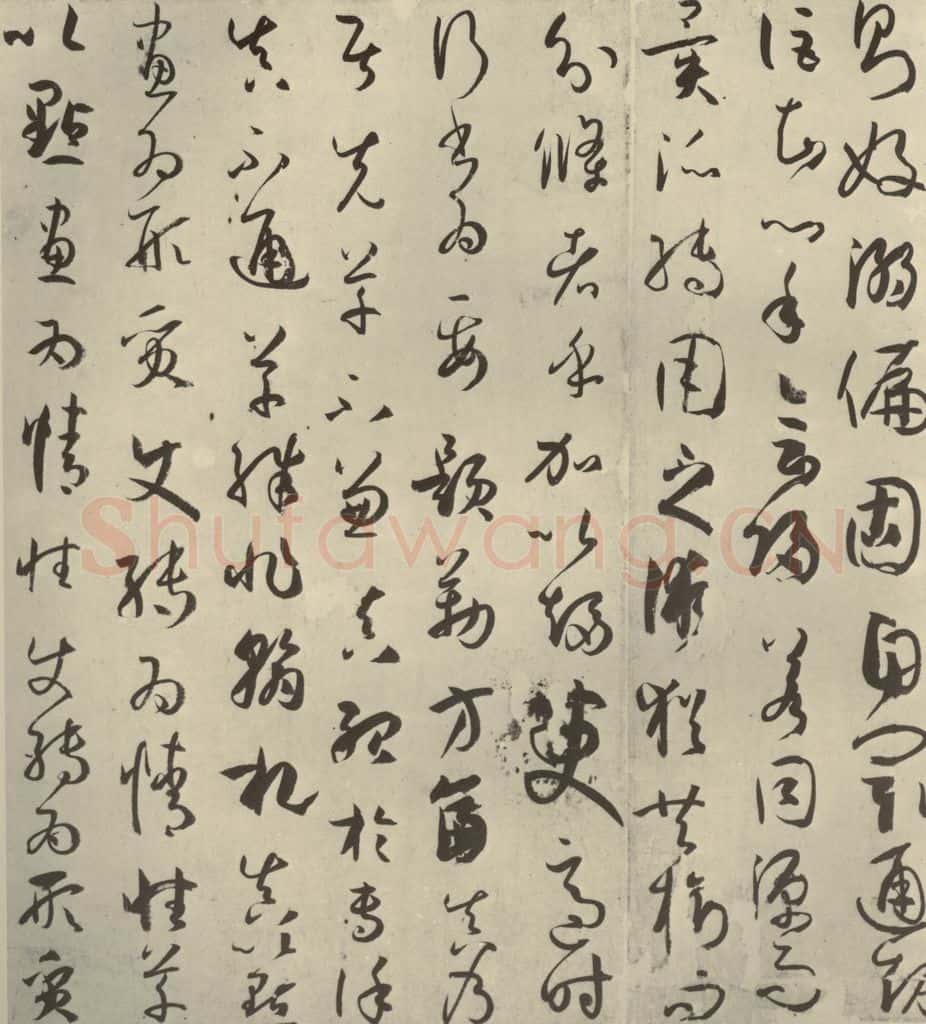 則好溺偏固自閡通規
詎知心手會歸若同源而
異派轉用之術猶共樹而
分條者乎加以趨變適時
行書為要題勒方幅真乃
居先草不兼真殆於專謹
真不通草殊非翰札真以點
畫為形質使轉為情性草
以點畫為情性使轉為形質
Shufawang.CN